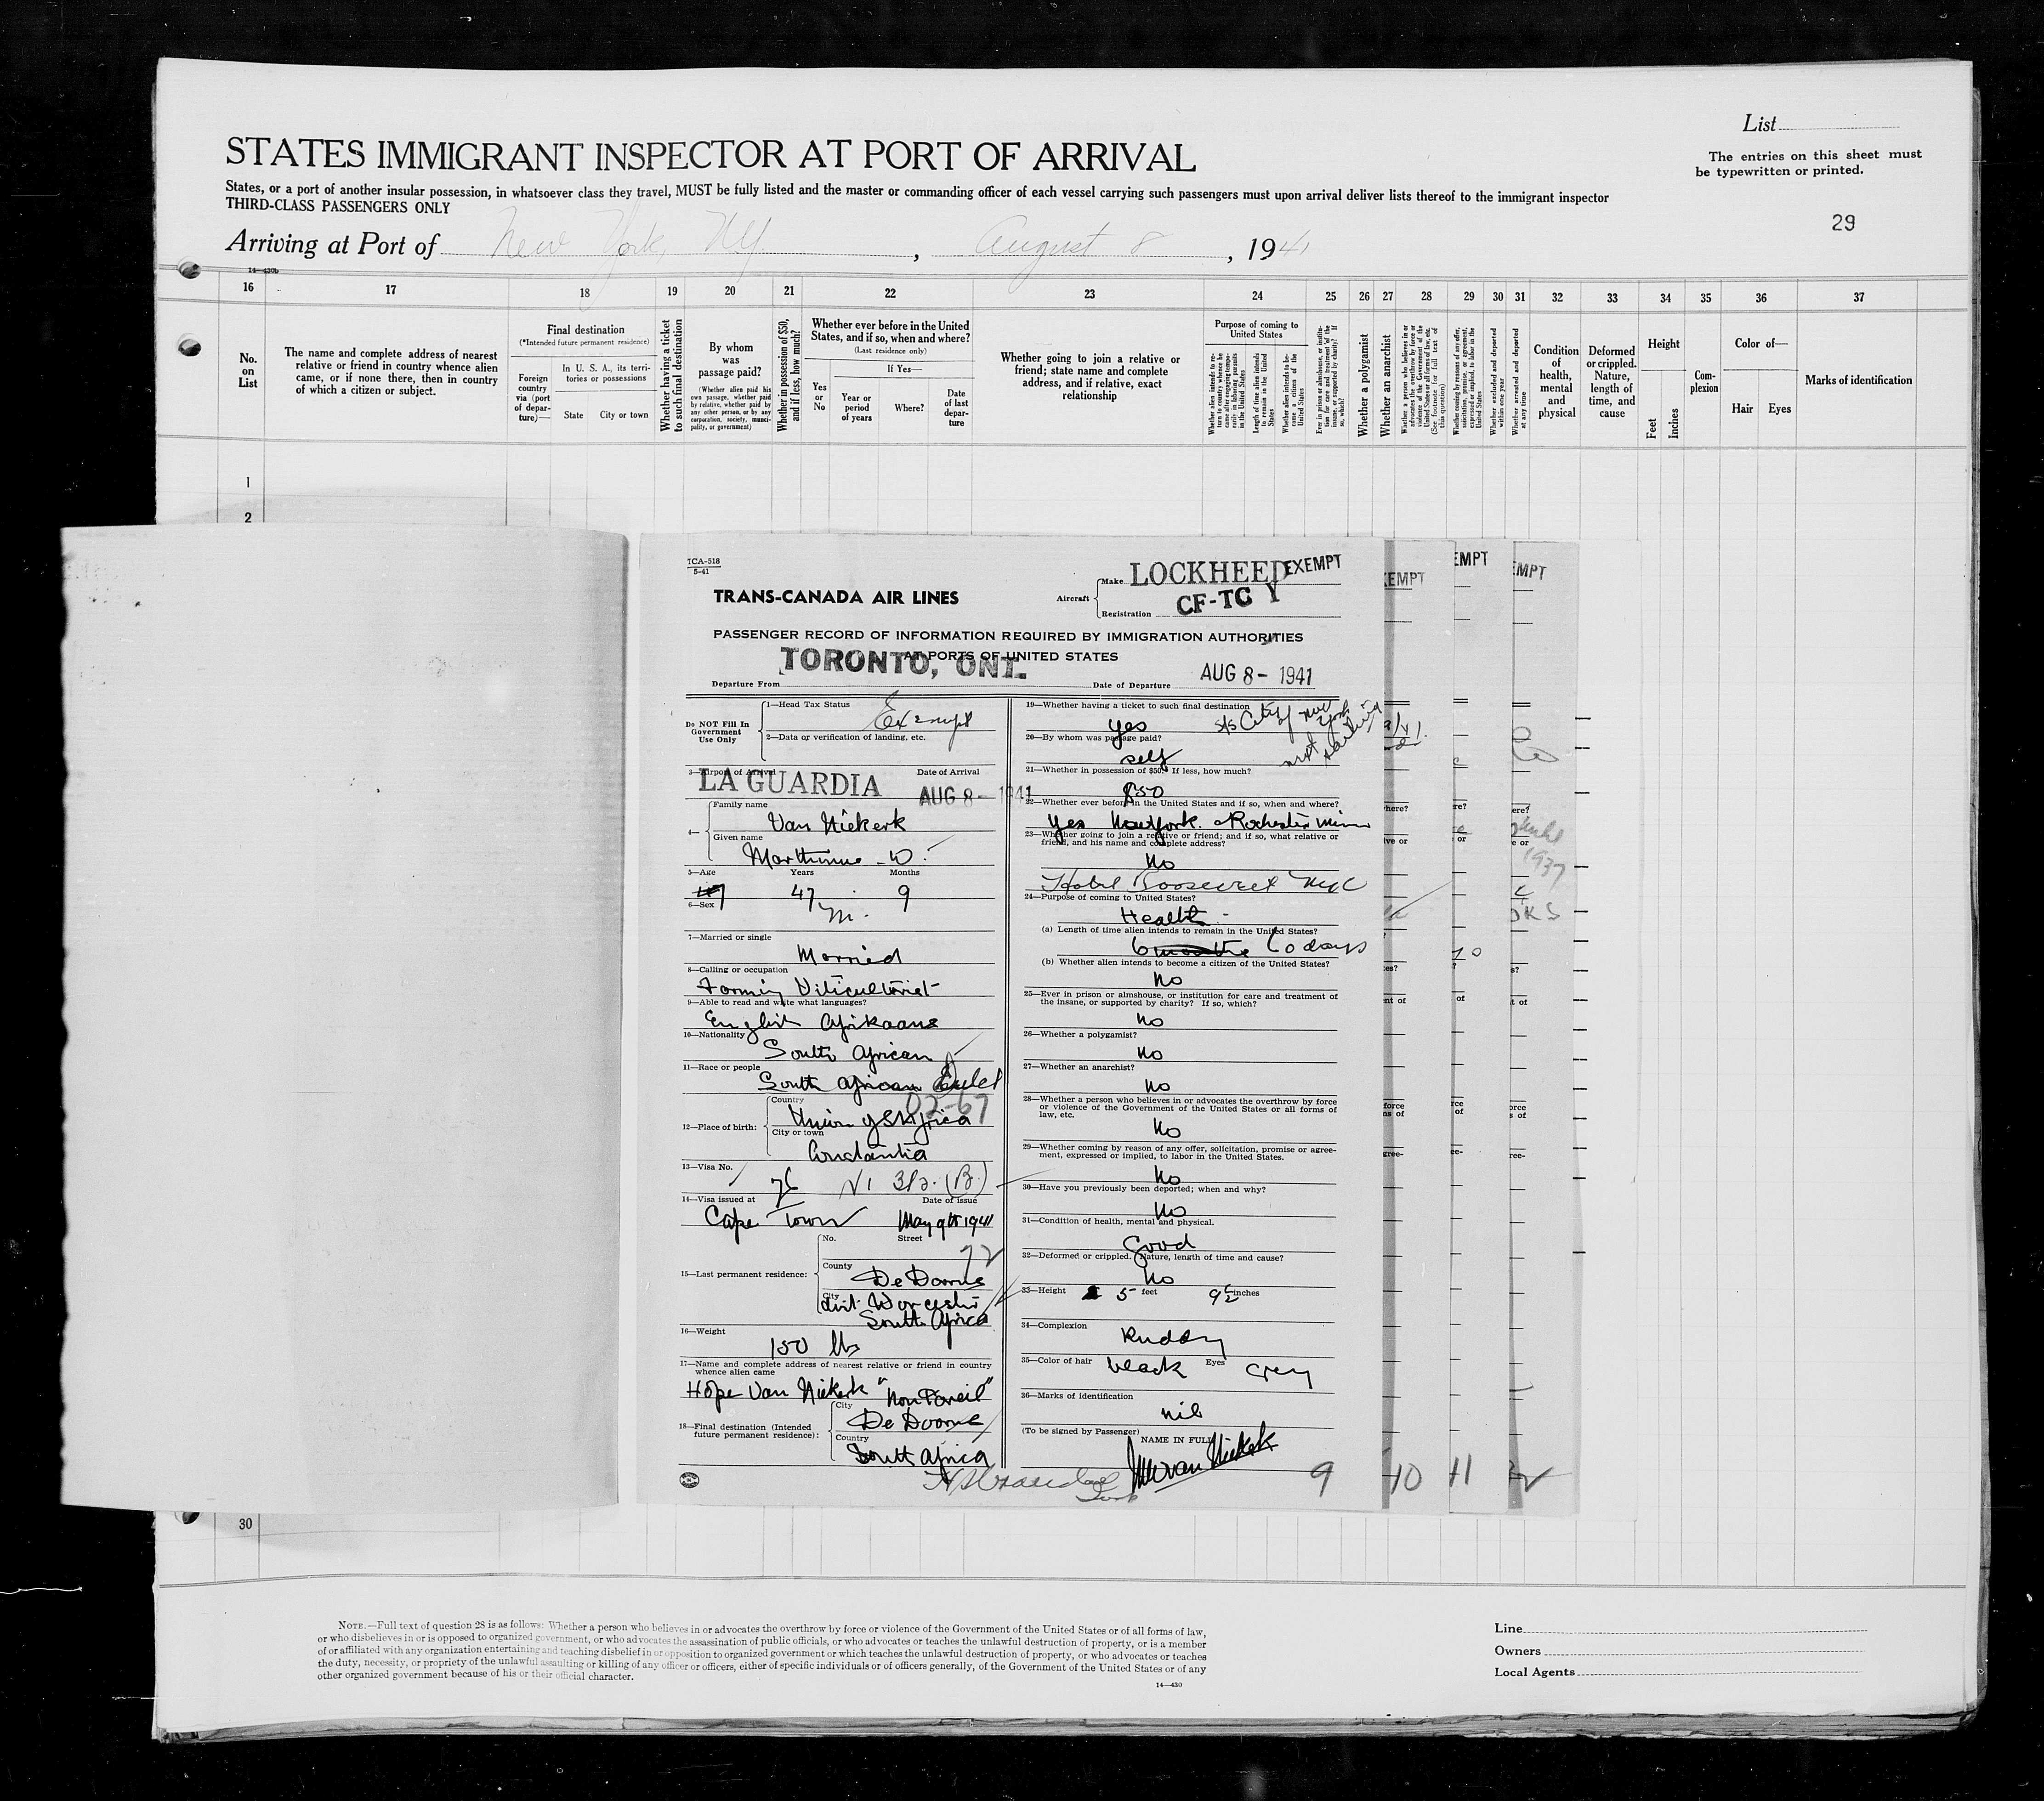 List
STATES IMMIGRANT INSPECTOR AT PORT OF ARRIVAL
The entries on this sheet must
be typewritten or printed.
States, or a port of another insular possession, in whatsoever class they travel, MUST be fully listed and the master or commanding officer of each vessel carrying such passengers must upon arrival deliver lists thereof to the immigrant inspector
THIRD-CLASS PASSENGERS ONLY
29
Arriving at Port of New York, NY, August 8, 1941
14—430b
16 17 18 19 20 21 22 23 24 25 26 27 28 29 30 31 32 33 34 35 36 37
No. on List
The name and complete address of nearest
relative or friend in country whence alien
came, or if none there, then in country
of which a citizen or subject.
Final destination
(*Intended future permanent residence)
Foreign country via (port of departure)—
In U. S. A., its territories or possessions
State City or town
Whether having a ticket to such final destination
By whom was passage paid?
(Whether alien paid his own passage, whether paid by relative, whether paid by any other person, or by any corporation, society, municipality, or government)
Whether in possession of $50, and if less, how much?
Whether ever before in the United
States, and if so, when and where?
(Last residence only)
If Yes—
Yes or No
Year or period of years
Where?
Date of last departure
Whether going to join a relative or
friend; state name and complete
address, and if relative, exact
relationship
Purpose of coming to United States
Whether alien intends to return to country whence he came after engaging temporarily in laboring pursuits in the United States
Length of time alien intends to remain in the United States
Whether alien intends to become a citizen of the United States
Ever in prison or almshouse, or institution for care and treatment of the insane, or supported by charity? If so, which?
Whether a polygamist
Whether an anarchist
Whether a person who believes in or advocates the overthrow by force or violence of the Government of the United States or all forms of law, etc. (See footnote for full text of this question)
Whether coming by reason of any offer, solicitation, promise, or agreement, expressed or implied, to labor in the United States
Whether excluded and deported within one year
Whether arrested and deported at any time
Condition of health, mental and physical
Deformed or crippled. Nature, length of time, and cause
Height
Feet Inches
Complexion
Color of—
Hair Eyes
Marks of identification
1
2
TCA-518
5-41
TRANS-CANADA AIR LINES
Aircraft
Make LOCKHEED
EXEMPT
Registration CF-TC Y
PASSENGER RECORD OF INFORMATION REQUIRED BY IMMIGRATION AUTHORITIES
AT PORTS OF UNITED STATES
Departure From TORONTO, ONT.
Date of Departure AUG 8 - 1941
Do NOT Fill In
Government
Use Only
1—Head Tax Status Exempt
2—Data or verification of landing, etc.
3—Airport of Arrival LA GUARDIA
Date of Arrival AUG 8 - 1941
4— Family name Van Niekerk
Given name Marthinus W.
5—Age Years 47 Months 9
6—Sex M.
7—Married or single
Married
8—Calling or occupation
Farming Viticulturist
9—Able to read and write what languages?
English Afrikaans
10—Nationality
South African
11—Race or people South African Dutch
02-67
12—Place of birth:
Country Union of S Africa
City or town Constantia
13—Visa No. 76 V1 3(2.(B)
14—Visa issued at Cape Town
Date of issue May 9th 1941
15—Last permanent residence:
No. Street
72
County De Doorns
City dist. Worcester
South Africa
16—Weight 150 lbs
17—Name and complete address of nearest relative or friend in country
whence alien came
Hope Van Niekerk "Non Pareil"
18—Final destination (Intended
future permanent residence):
City De Doorns
Country South Africa
19—Whether having a ticket to such final destination
yes s/s City of New York not sailing
20—By whom was passage paid?
self
21—Whether in possession of $50? If less, how much?
$50
22—Whether ever before in the United States and if so, when and where?
Yes New York & Rochester Minn
23—Whether going to join a relative or friend; and if so, what relative or
friend, and his name and complete address?
No
Hotel Roosevelt NYC
24—Purpose of coming to United States?
Health
(a) Length of time alien intends to remain in the United States?
6 months 60 days
(b) Whether alien intends to become a citizen of the United States?
No
25—Ever in prison or almshouse, or institution for care and treatment of
the insane, or supported by charity? If so, which?
No
26—Whether a polygamist?
No
27—Whether an anarchist?
No
28—Whether a person who believes in or advocates the overthrow by force
or violence of the Government of the United States or all forms of
law, etc.
No
29—Whether coming by reason of any offer, solicitation, promise or agree-
ment, expressed or implied, to labor in the United States.
No
30—Have you previously been deported; when and why?
No
31—Condition of health, mental and physical.
Good
32—Deformed or crippled. Nature, length of time and cause?
No
33—Height 5 feet 9½ inches
34—Complexion Ruddy
35—Color of hair black Eyes Grey
36—Marks of identification
nil
(To be signed by Passenger)
NAME IN FULL
MW van Niekerk
9 10 11 12
EMPT
EMPT
EMPT
1937
30
NOTE.—Full text of question 28 is as follows: Whether a person who believes in or advocates the overthrow by force or violence of the Government of the United States or of all forms of law,
or who disbelieves in or is opposed to organized government, or who advocates the assassination of public officials, or who advocates or teaches the unlawful destruction of property, or is a member
of or affiliated with any organization entertaining and teaching disbelief in or opposition to organized government or which teaches the unlawful destruction of property, or who advocates or teaches
the duty, necessity, or propriety of the unlawful assaulting or killing of any officer or officers, either of specific individuals or of officers generally, of the Government of the United States or of any
other organized government because of his or their official character.
14—430
Line
Owners
Local Agents